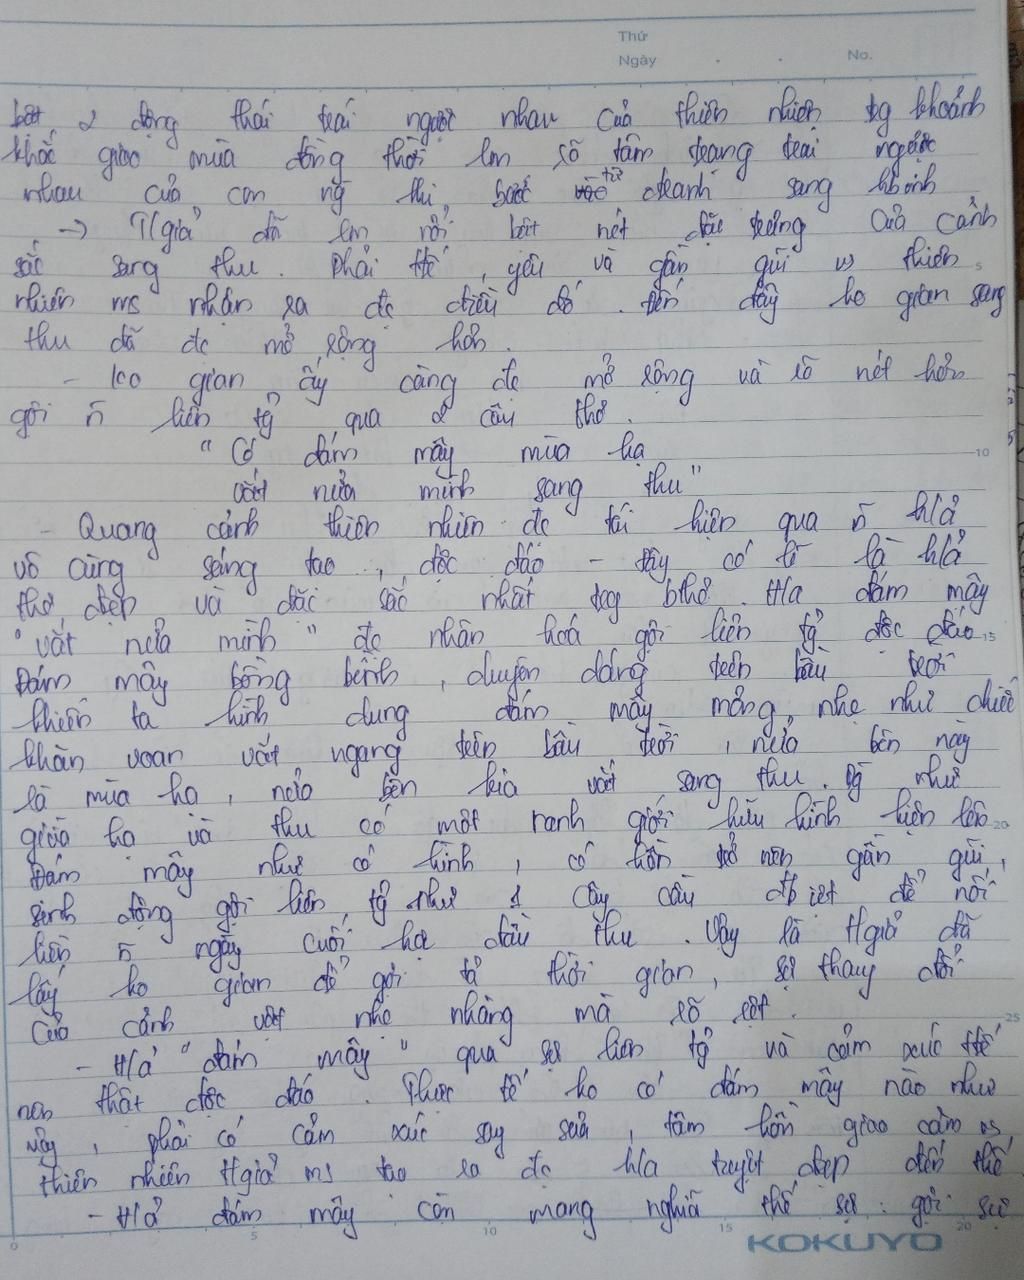 Thứ
Ngày . . No.
bật 2 động thái trái ngược nhau của thiên nhiên tg khoảnh
khắc giao mùa đồng thời lm rõ tâm trạng trái ngược
nhau của con ng thi, bước từ thanh sang
-> T/giả đã lm nổi bật nét đặc trưng của cảnh
sắc sang thu. Phải thế, yêu và gần gũi vs thiên
nhiên ms nhận ra đc điều đó. Đến đây ko gian sang
thu đã đc mở rộng hơn.
- Ko gian ấy càng đc mở rộng và rõ nét hơn
gợi n~ liên tg~ qua 2 câu thơ.
"Có đám mây mùa hạ
vắt nửa mình sang thu"
- Quang cảnh thiên nhiên đc tái hiện qua n~ h/ả
vô cùng sáng tạo, độc đáo - đây có lẽ là h/ả
thơ đẹp và đặc sắc nhất tg bthơ. H/a đám mây
"vắt nửa mình" đc nhân hoá gợi liên tg~ độc đáo
Đám mây bồng bềnh, duyên dáng trên bầu trời
khiến ta hình dung đám mây mỏng nhẹ như chiếc
khăn voan vắt ngang trên bầu trời, nửa bên này
là mùa hạ, nửa bên kia vắt sang thu. như
giữa hạ và thu có một ranh giới hữu hình hiện lên
Đám mây như có hình, có hồn trở nên gần gũi,
sinh động gợi liên tg~ như 1 cây cầu đb để nối
liền n~ ngày cuối hạ đầu thu. Vậy là t/giả đã
lấy ko gian để gợi tả thời gian, sự thay đổi
của cảnh vật nhẹ nhàng mà rõ rệt.
- H/ả "đám mây" qua sự liên tg~ và cảm xúc trở
nên thật độc đáo. Thực tế ko có đám mây nào như
vậy, phải có cảm xúc say sưa, tâm hồn giao cảm vs
thiên nhiên t/giả ms tạo ra đc h/a tuyệt đẹp đến thế
- H/ả đám mây còn mang nghĩa thế sự: gợi sự
5
10
15
20
25
0 5 10 15 20
KOKUYO